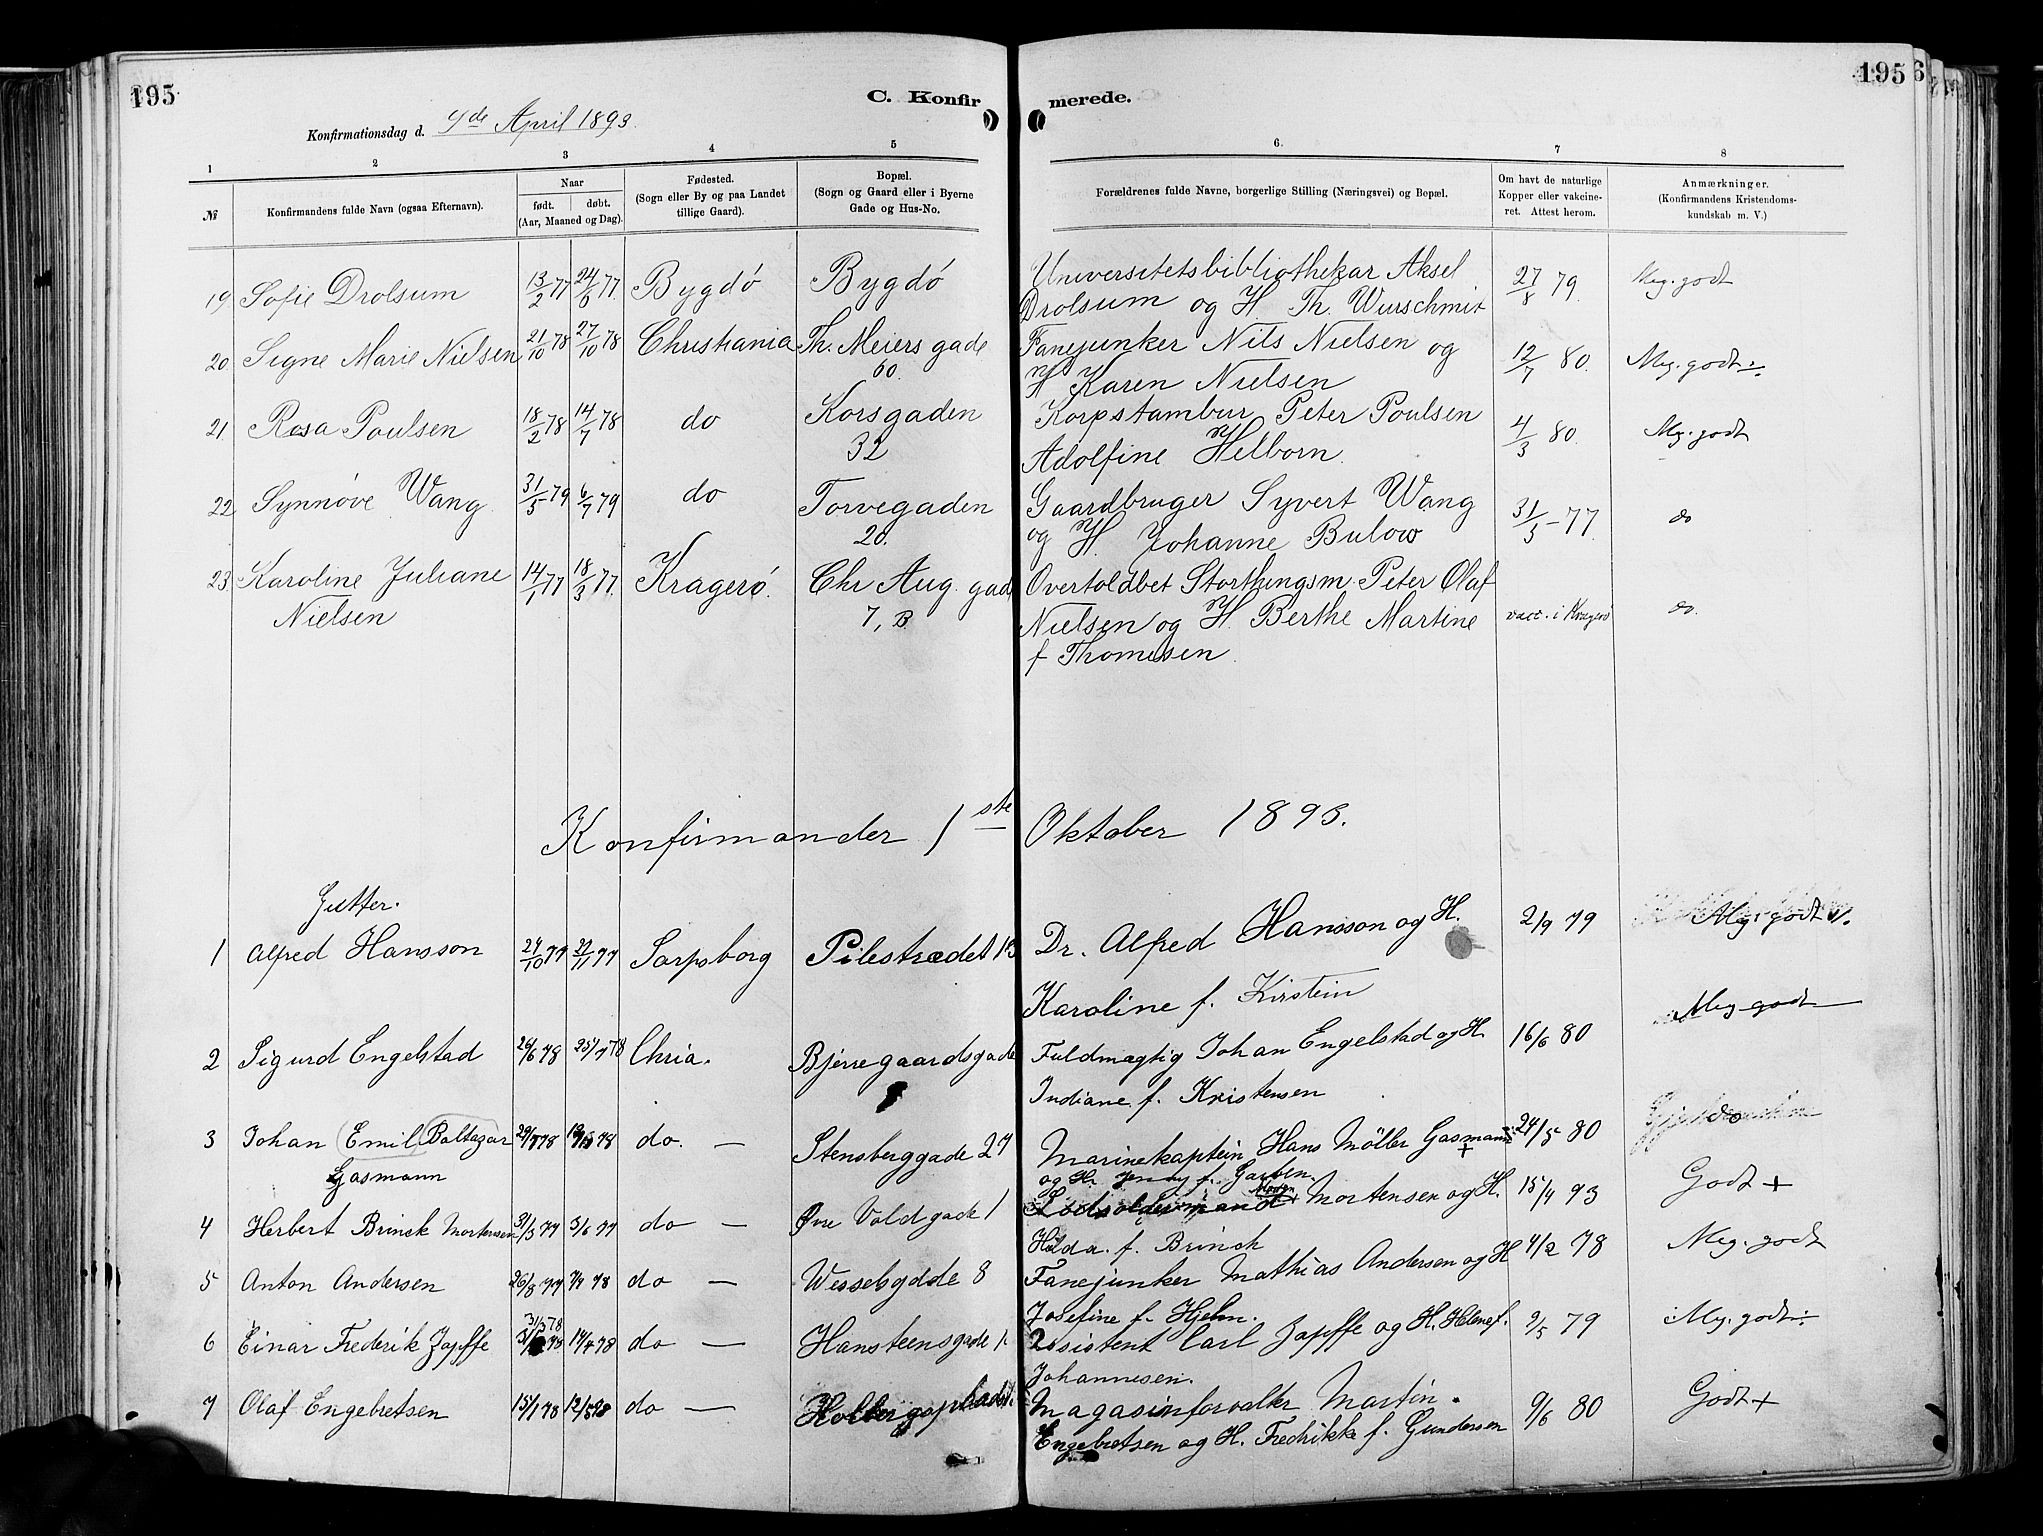 195
C. Konfirmerede.
195
6
Konfirmationsdag d. 9de April 1893.
1 2 3 4 5 6. 7 8
№
Konfirmandens fulde Navn (ogsaa Efternavn).
Naar
født. døbt.
(Aar, Maaned og Dag).
Fødested.
(Sogn eller By og paa Landet
tillige Gaard).
Bopæl.
(Sogn og Gaard eller i Byerne
Gade og Hus-No.
Forældrenes fulde Navne, borgerlige Stilling (Næringsvei) og Bopæl.
Om havt de naturlige
Kopper eller vakcine-
ret. Attest herom.
Anmærkninger.
(Konfirmandens Kristendoms-
kundskab m. V.)
19 Sofie Drolsum 13/2 77 24/6 77. Bygdø Bygdø Universitetsbibliothekar Aksel 27/8 79. Meg. godt
Drolsum og H. Th. Wurschmit
20. Signe Marie Nielsen 21/10 78 27/10 78 Christiania Th. Meiers gade Fanejunker Nils Nielsen og 12/7 80. Meg. godt ÷
60. H Karen Nielsen
21. Rosa Poulsen 18/2 78 14/7 78 do Korsgaden Korpstambur Peter Poulsen 4/3 80. Mg. godt
32 Adolfine Helborn.
22. Synnøve Wang 31/5 79 6/7 79 do Torvegaden Gaardbruger Syvert Wang 31/5 - 77. do
20. og H. Johanne Bulow
23. Karoline Juliane 14/1 77 18/3 77. Kragerø. Chr Aug. gad Overtoldbet Storthingsm. Peter Olaf
Nielsen 7, B. Nielsen og H. Berthe Martine vacc. i Kragerø do.
f Thomesen.
Konfirmander 1ste Oktober 1893.
Gutter.
1 Alfred Hansson 24/10 77 22/11 77 Sarpsborg Pilestrædet 13 Dr. Alfred Hansson og H. 2/9 79 Mg. godt
Karoline f. Kirstein
2 Sigurd Engelstad 26/6 78 25/7 78 Chria. Bjerregaardsgade Fuldmægtig Johan Engelstad og H. 16/6 80 Meg godt
Indiane f. Kristensen
3 Johan (Emil Baltazar) 29/7 78 78 do. — Stensberggade 27 Marinekaptein Hans Möller Gasmann 24/5 80 do
Gasmann og H. Jenny f. Garben.
4 Herbert Brinck Mortensen 31/3 77 3/6 77 do — Øvre Voldgade 1 Lodsoldermand Mortensen og H. 15/4 93 Godt +
Hilda f. Brinck
5 Anton Andersen 26/8 77 7/9 78 do — Wesselsgade 8 Fanejunker Mathias Andersen og H 4/2 78 Meg. godt
Josefine f. Hjelm.
31/3 78
6 Einar Frederik Japffe 14/4 78 do — Hansteensgade Assistent Carl Japffe og H. Helene f. 2/5 79 Mg. godt ÷
Johannesen.
7 Olaf Engebretsen 15/1 78 do — Magasinforvalter Martin 9/6 80 Godt +
Engebretsen og H. Fredrikke f. Gundersen